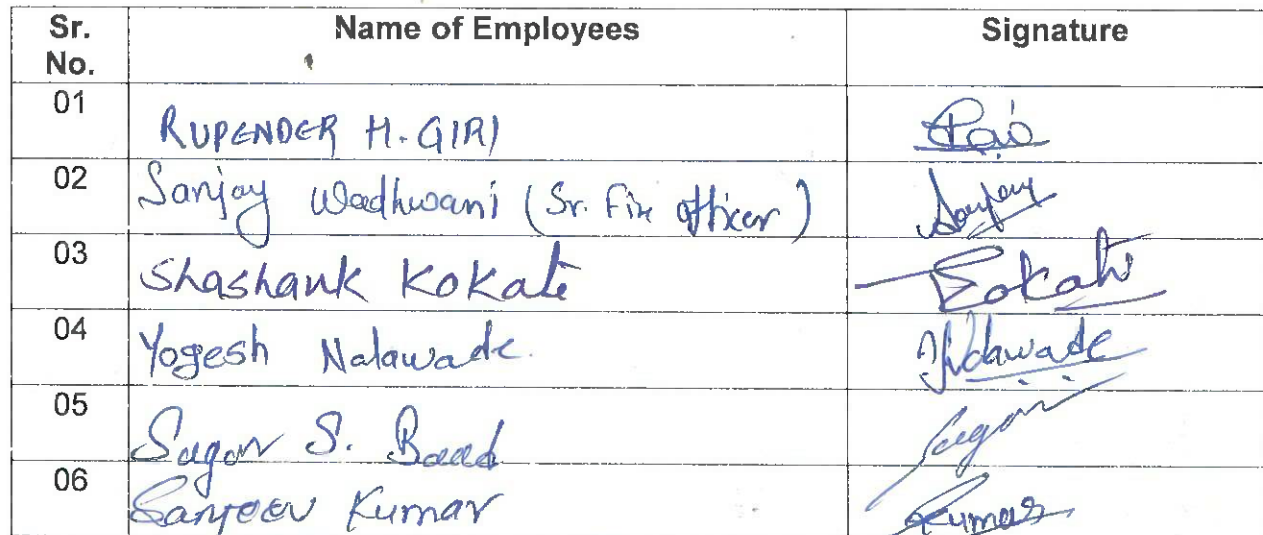 Sr. No. Name of Employees Signature
01 RUPENDER H. GIRI
02 Sanjay Wadhwani (Sr. Fire officer) Sanjay
03 Shashank Kokate Kokate
04 Yogesh Nalawade. YNalawade
05 Sagar S. Sagar
06 Sanjeev Kumar Kumar